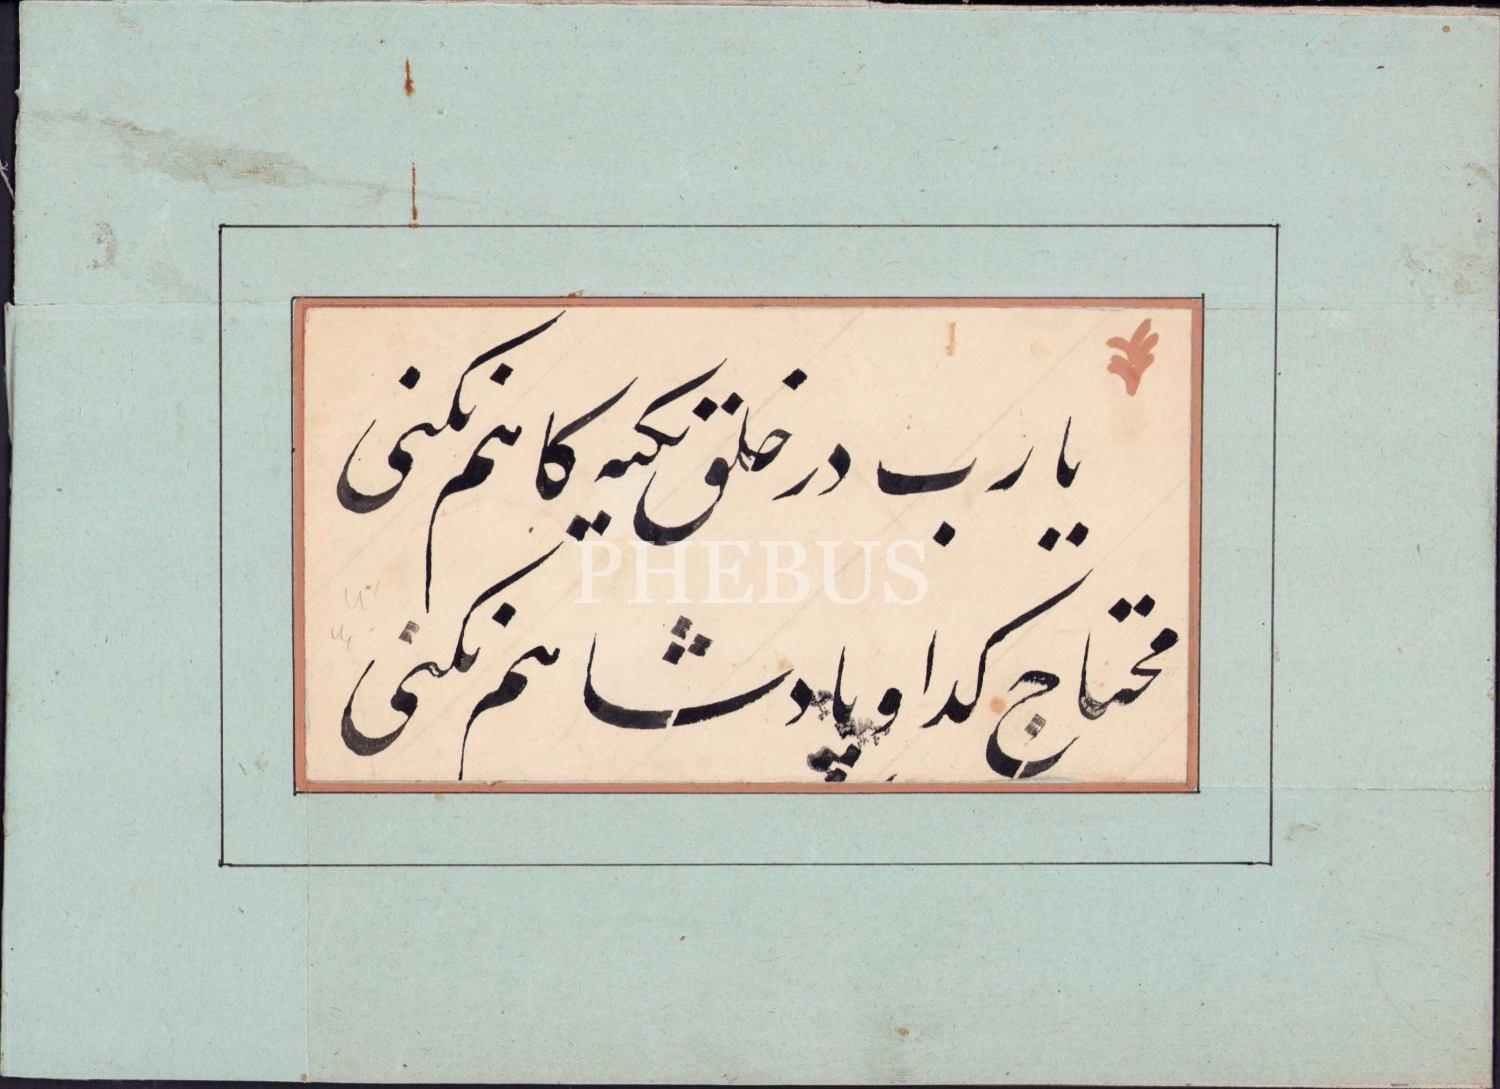 یا رب در خلق تکیه کاهم نکنی
محتاج کدا و پادشاهم نکنی
PHEBUS